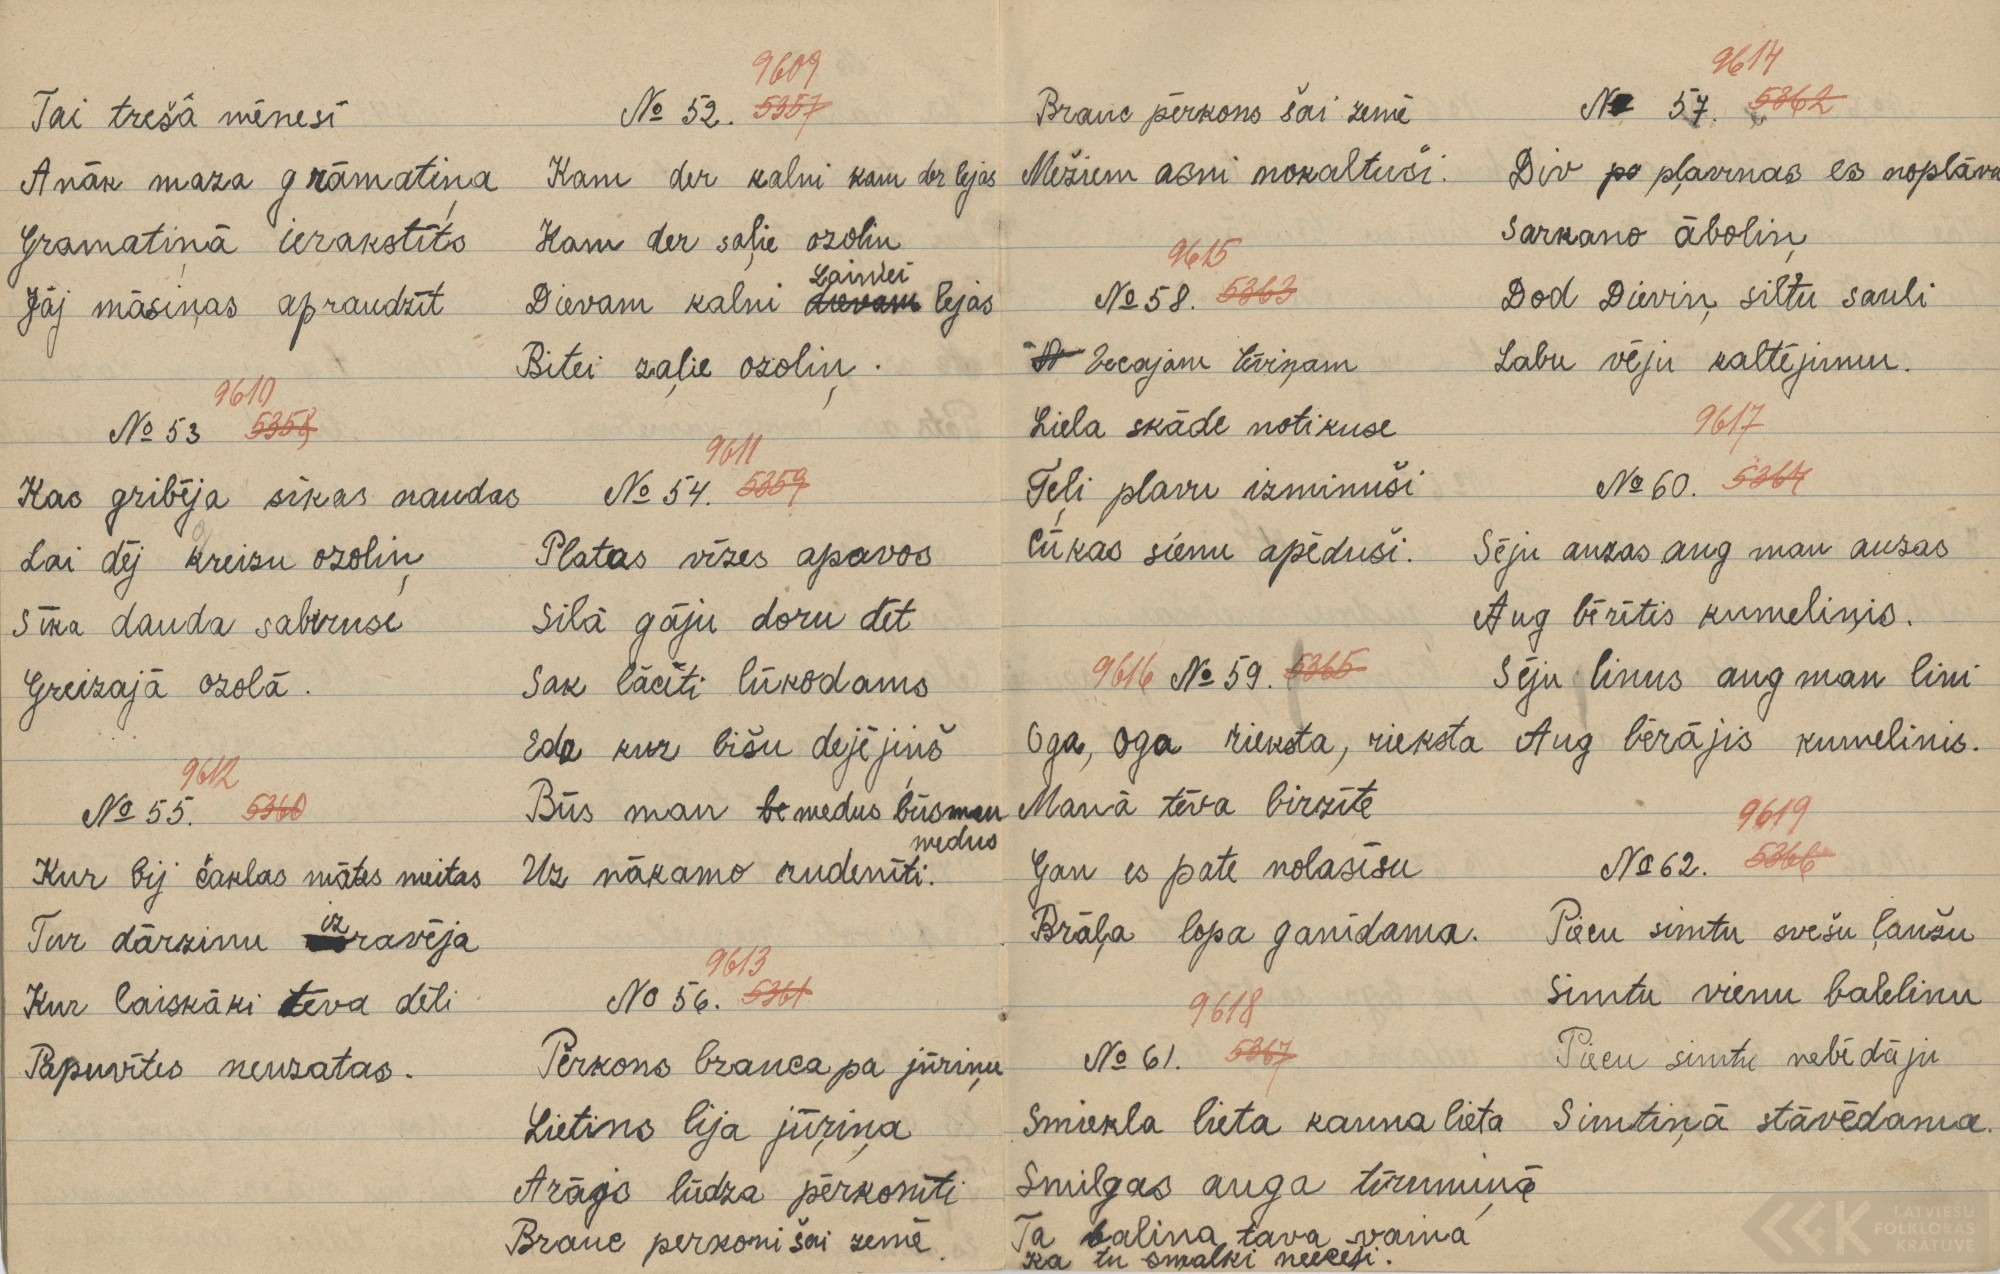 Tai trešâ mēnesī
Anāk maza grāmatiņa
Gramatiņā ierakstīts
Jāj māsiņas apraudzīt
9610
№ 53 5358
Kas gribēja sīkas naudas
Lai dēj kreizu ozoliņ
Sīka dauda sabiruse
Greizajā ozolā.
9612
№ 55. 5360
Kur bij čaklas mātes meitas
Tur dārzinu izravēja
Kur laiskāki tēva dēli
Papuvītes neuzatas.
9609
№ 52. 5357
Kam der kalni kam der lejas
Kam der saļie ozoliņ
Dievam kalni dievam Laimei lejas
Bitei zaļie ozoliņ.
9611
№ 54. 5359
Platas vīzes apavos
Silā gāju doru dēt
Sak lācīti lūkodams
Eda kur bišu dejējiņš
Būs man be medus būs man medus
Uz nākamo rudenīti.
9613
№ 56. 5361
Pērkons brauca pa jūriņu
Lietins lija jūŗiņa
Arājs lūdza pērkonīti
Brauc perkoni šai zemē
Brauc pērkons šai zemē
Mežiem asni nokaltuši.
9615
№ 58. 5363
Vecajam tēviņam
Liela skāde notikuse
Teļi plavu izminuši
Cūkas sienu apēduši.
9616 № 59. 5365
Oga, oga rieksta, rieksta
Manā tēva birzīte
Gan es pate nolasīsu
Brāļa lopa ganīdama.
9618
№ 61. 5367
Smiekla lieta kauna lieta
Smilgas auga tīrumiņā
Ta balina tava vaina
ka tu smalki neecēji.
9614
№ 57. 5362
Div po pļavnas es noplāvu
Sarkano āboliņ
Dod Dieviņ siltu sauli
Labu vēju kaltējumu.
9617
№ 60. 5364
Sēju auzas aug man auzas
Aug bērītis kumeliņis.
Sēju linus aug man lini
Aug bērājis kumelinis.
9619
№ 62. 5366
Piecu simtu svešu ļaužu
Simtu vienu balelinu
Piecu simtu nebēdāju
Simtiņā stāvēdama.
LATVIEŠU
FOLKLORAS
KRĀTUVE